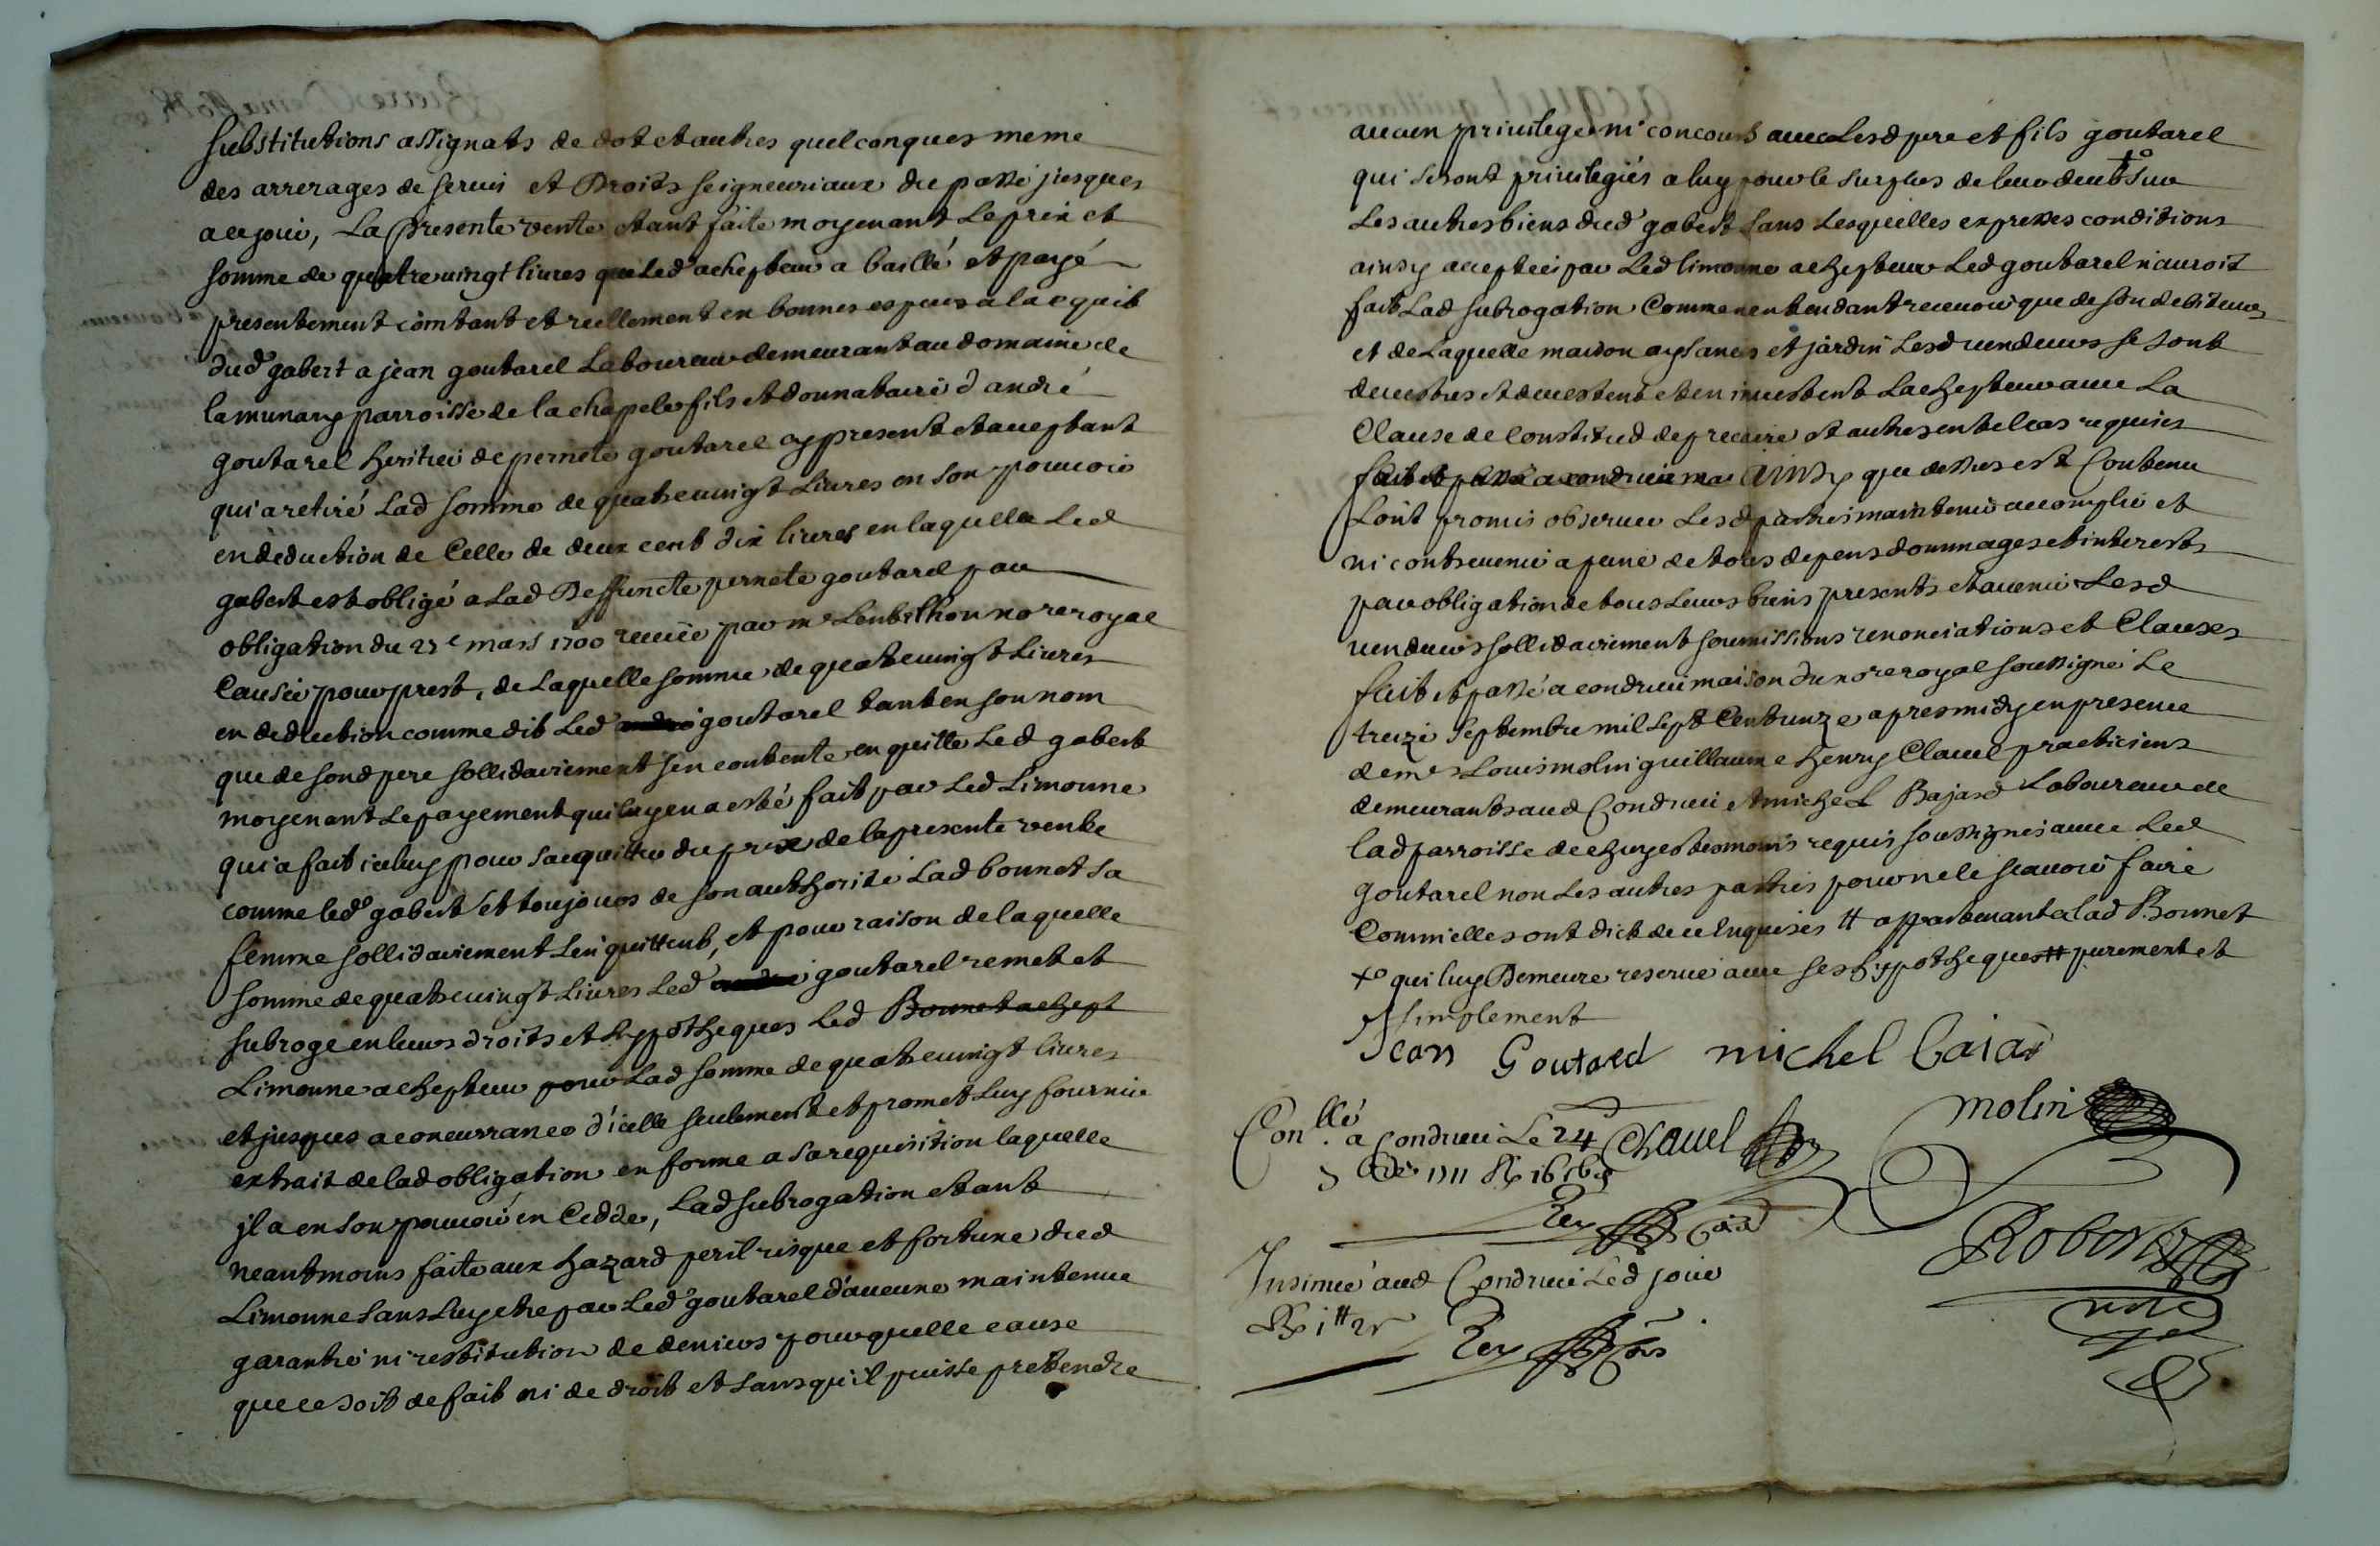 substitutions assignats de dot et autres quelconques meme
des arrerages de servis et Droits seigneuriaux du passé jusques
a ce jour, La presente vente etant faite moyenant le prix et
somme de quatre vingt livres que led achepteur a baillé et payé
presentement comtant et reellement en bonnes especes a lacquit
dud gabert a jean goutarel Laboureur demeurant au domaine de
lemunary parroisse de la chapele fils et donnataire d'andré
goutarel heritier de pernete goutarel cy present et aceptant
qui a retiré Lad somme de quatre vingt Livres en son pouvoir
en deduction de Celle de deux cent dix livres en laquelle Led
gabert est obligé a Lad Deffuncte pernete goutarel par
obligation du 27e mars 1700 receüe par me Lentilhon nore royal
Causée pour prest, de Laquelle somme de quatre vingt Livres
en deduction comme dit Led goutarel tant en son nom
que de sond pere sollidairement s'en contente en quitte Led gabert
moyenant Le payement qui luy en a esté fait par Led Limonne
qui a fait iceluy pour sacquitter du prix de la presente vente
comme led gabert et toujours de son authorité Lad bonnet sa
femme sollidairement L'en quittent, et pour raison de laquelle
somme de quatre vingt Livres Led goutarel remet et
subroge en leurs droits et hypotheques led Bonnet achept
Limonne achepteur pour Lad somme de quatre vingt livres
et jusques a concurrance d'icelle seulement et promet Luy fournir
extrait de lad obligation en forme a sa requisition laquelle
jl a en son pouvoir en Cedde, Lad subrogation etant
neantmoins faite aux hazard peril risque et fortune dud
Limonne sans Luy etre par Led goutarel d'aucune maintenue
garantie ni restitution de deniers pour quelle cause
que ce soit de fait ni de droit et sans qu'il puisse pretendre
aucun privilege ni concours avec Lesd pere et fils goutarel
qui seront privilegiés a luy pour le surplus de leur deub +o sur
Les autres biens dud gabert sans Lesquelles expresses conditions
ainsy acceptée par Led limonne achepteur Led goutarel n'auroit
fait Lad subrogation Comme nentendant recevoir que de son debiteur
et de Laquelle maison aysances et jardin Lesd vendeurs se sont
devestus et devestent et en investent Lachepteur avec La
Clause de Constitud de precaire et autres en tel cas requises
fait et passé a condrieu mai ainsy que dessus est Contenu
L'ont promis observer Lesd parties maintenir accomplir et
ni contrevenir a peine de tous depens dommages et interests
par obligation de tous Leurs biens presents et avenir Lesd
vendeurs sollidairement soumissions renonciations et Clauses
fait et passé a condrieu maison du nore royal soussigné Le
treize Septembre mil sept Cent unze apres midy en presence
de mes Louis molin guillaume henry Clavel practiciens
demeurants aud Condrieu et michel Bajard Laboureur de
lad parroisse de chuyes tesmoins requis soussignés avec Led
goutarel non Les autres parties pour ne le scavoir faire
Comm'elles ont dict de ce Enquises # appartenant a lad Bonnet
+o qui luy Demeure reservé avec ses hypotheques # purement et
simplement
Jean Goutarel michel baiar
molin
Conllé a Condrieu Le 24 Clavel
7bre 1711
Rey
Insinué aud Condrieu led jour
Rey